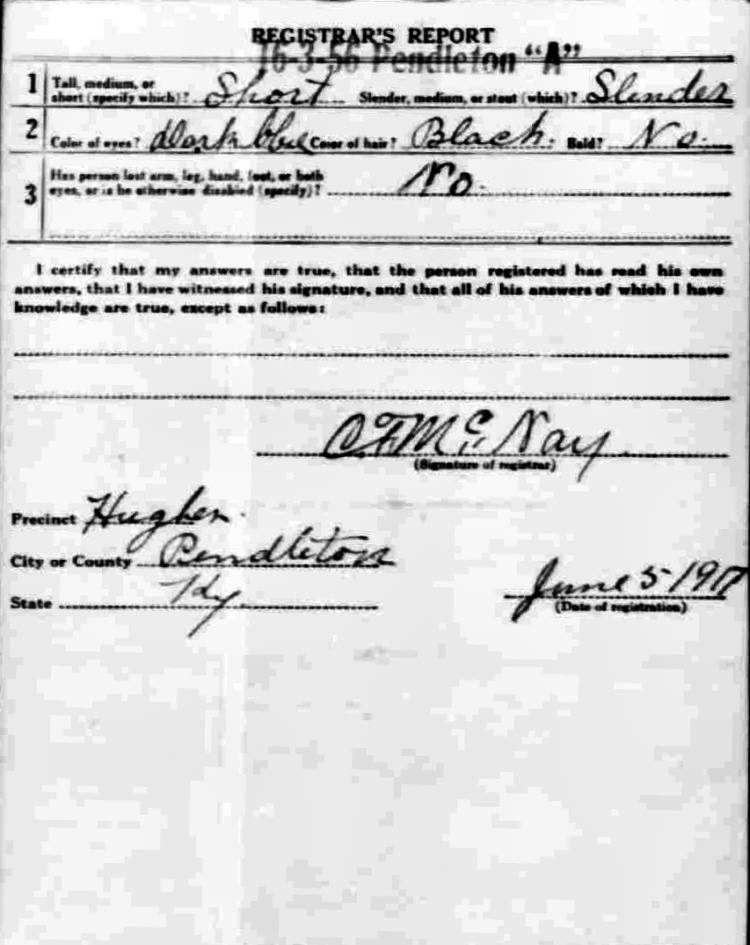 REGISTRAR'S REPORT
16-3-56 Pendleton "A"
1 Tall, medium, or short (specify which)? Short Slender, medium, or stout (which)? Slender
2 Color of eyes? Dark blue Color of hair? Black. Bald? No.
3 Has person lost arm, leg, hand, foot, or both
eyes, or is he otherwise disabled (specify)? No.
I certify that my answers are true, that the person registered has read his own
answers, that I have witnessed his signature, and that all of his answers of which I have
knowledge are true, except as follows:
C.F. McNay
(Signature of registrar)
Precinct Hughes.
City or County Pendleton
State Ky. June 5-1917
(Date of registration)